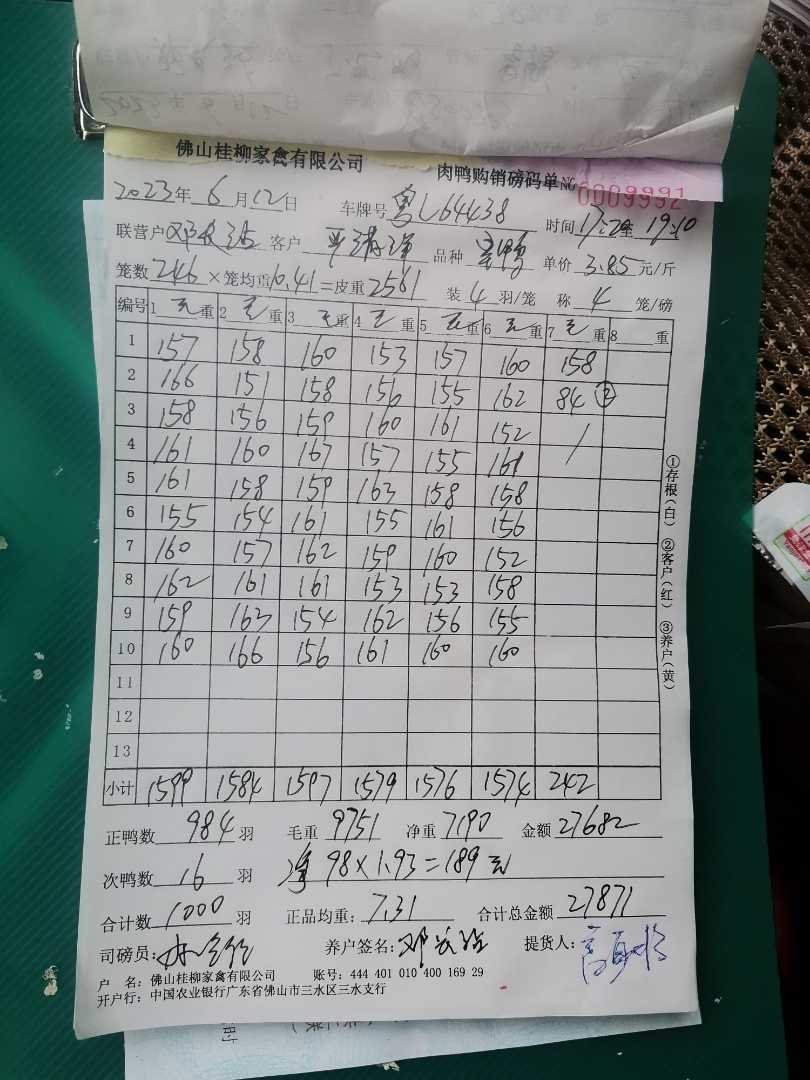 佛山桂柳家禽有限公司 肉鸭购销磅码单 NO 0009991
2023年 6月12日 车牌号 粤L64438 时间 17:20至 19:10
联营户 客户 品种 单价 3.85 元/斤
笼数 246 ×笼均重 10.41 =皮重 2561 装 4 羽/笼 称 4 笼/磅
编号 1 毛重 2 毛重 3 毛重 4 毛重 5 毛重 6 毛重 7 毛重 8 重
1 157 158 160 153 157 160 158
2 166 151 158 156 155 162 84 ②
3 158 156 159 160 161 152 /
4 161 160 167 157 155 161 /
5 161 158 159 163 158 158
6 155 154 161 155 161 156
7 160 157 162 159 160 152
8 162 161 161 153 153 158
9 159 163 154 162 156 155
10 160 166 156 161 160 160
11
12
13
小计 1599 1584 1597 1579 1576 1574 242
①存根(白) ②客户(红) ③养户(黄)
正鸭数 984 羽 毛重 9751 净重 7190 金额 27682
次鸭数 16 羽 净 98×1.93=189元
合计数 1000 羽 正品均重: 7.31 合计总金额 27871
司磅员: 养户签名: 提货人:
户 名: 佛山桂柳家禽有限公司 账号: 444 401 010 400 169 29
开户行: 中国农业银行广东省佛山市三水区三水支行